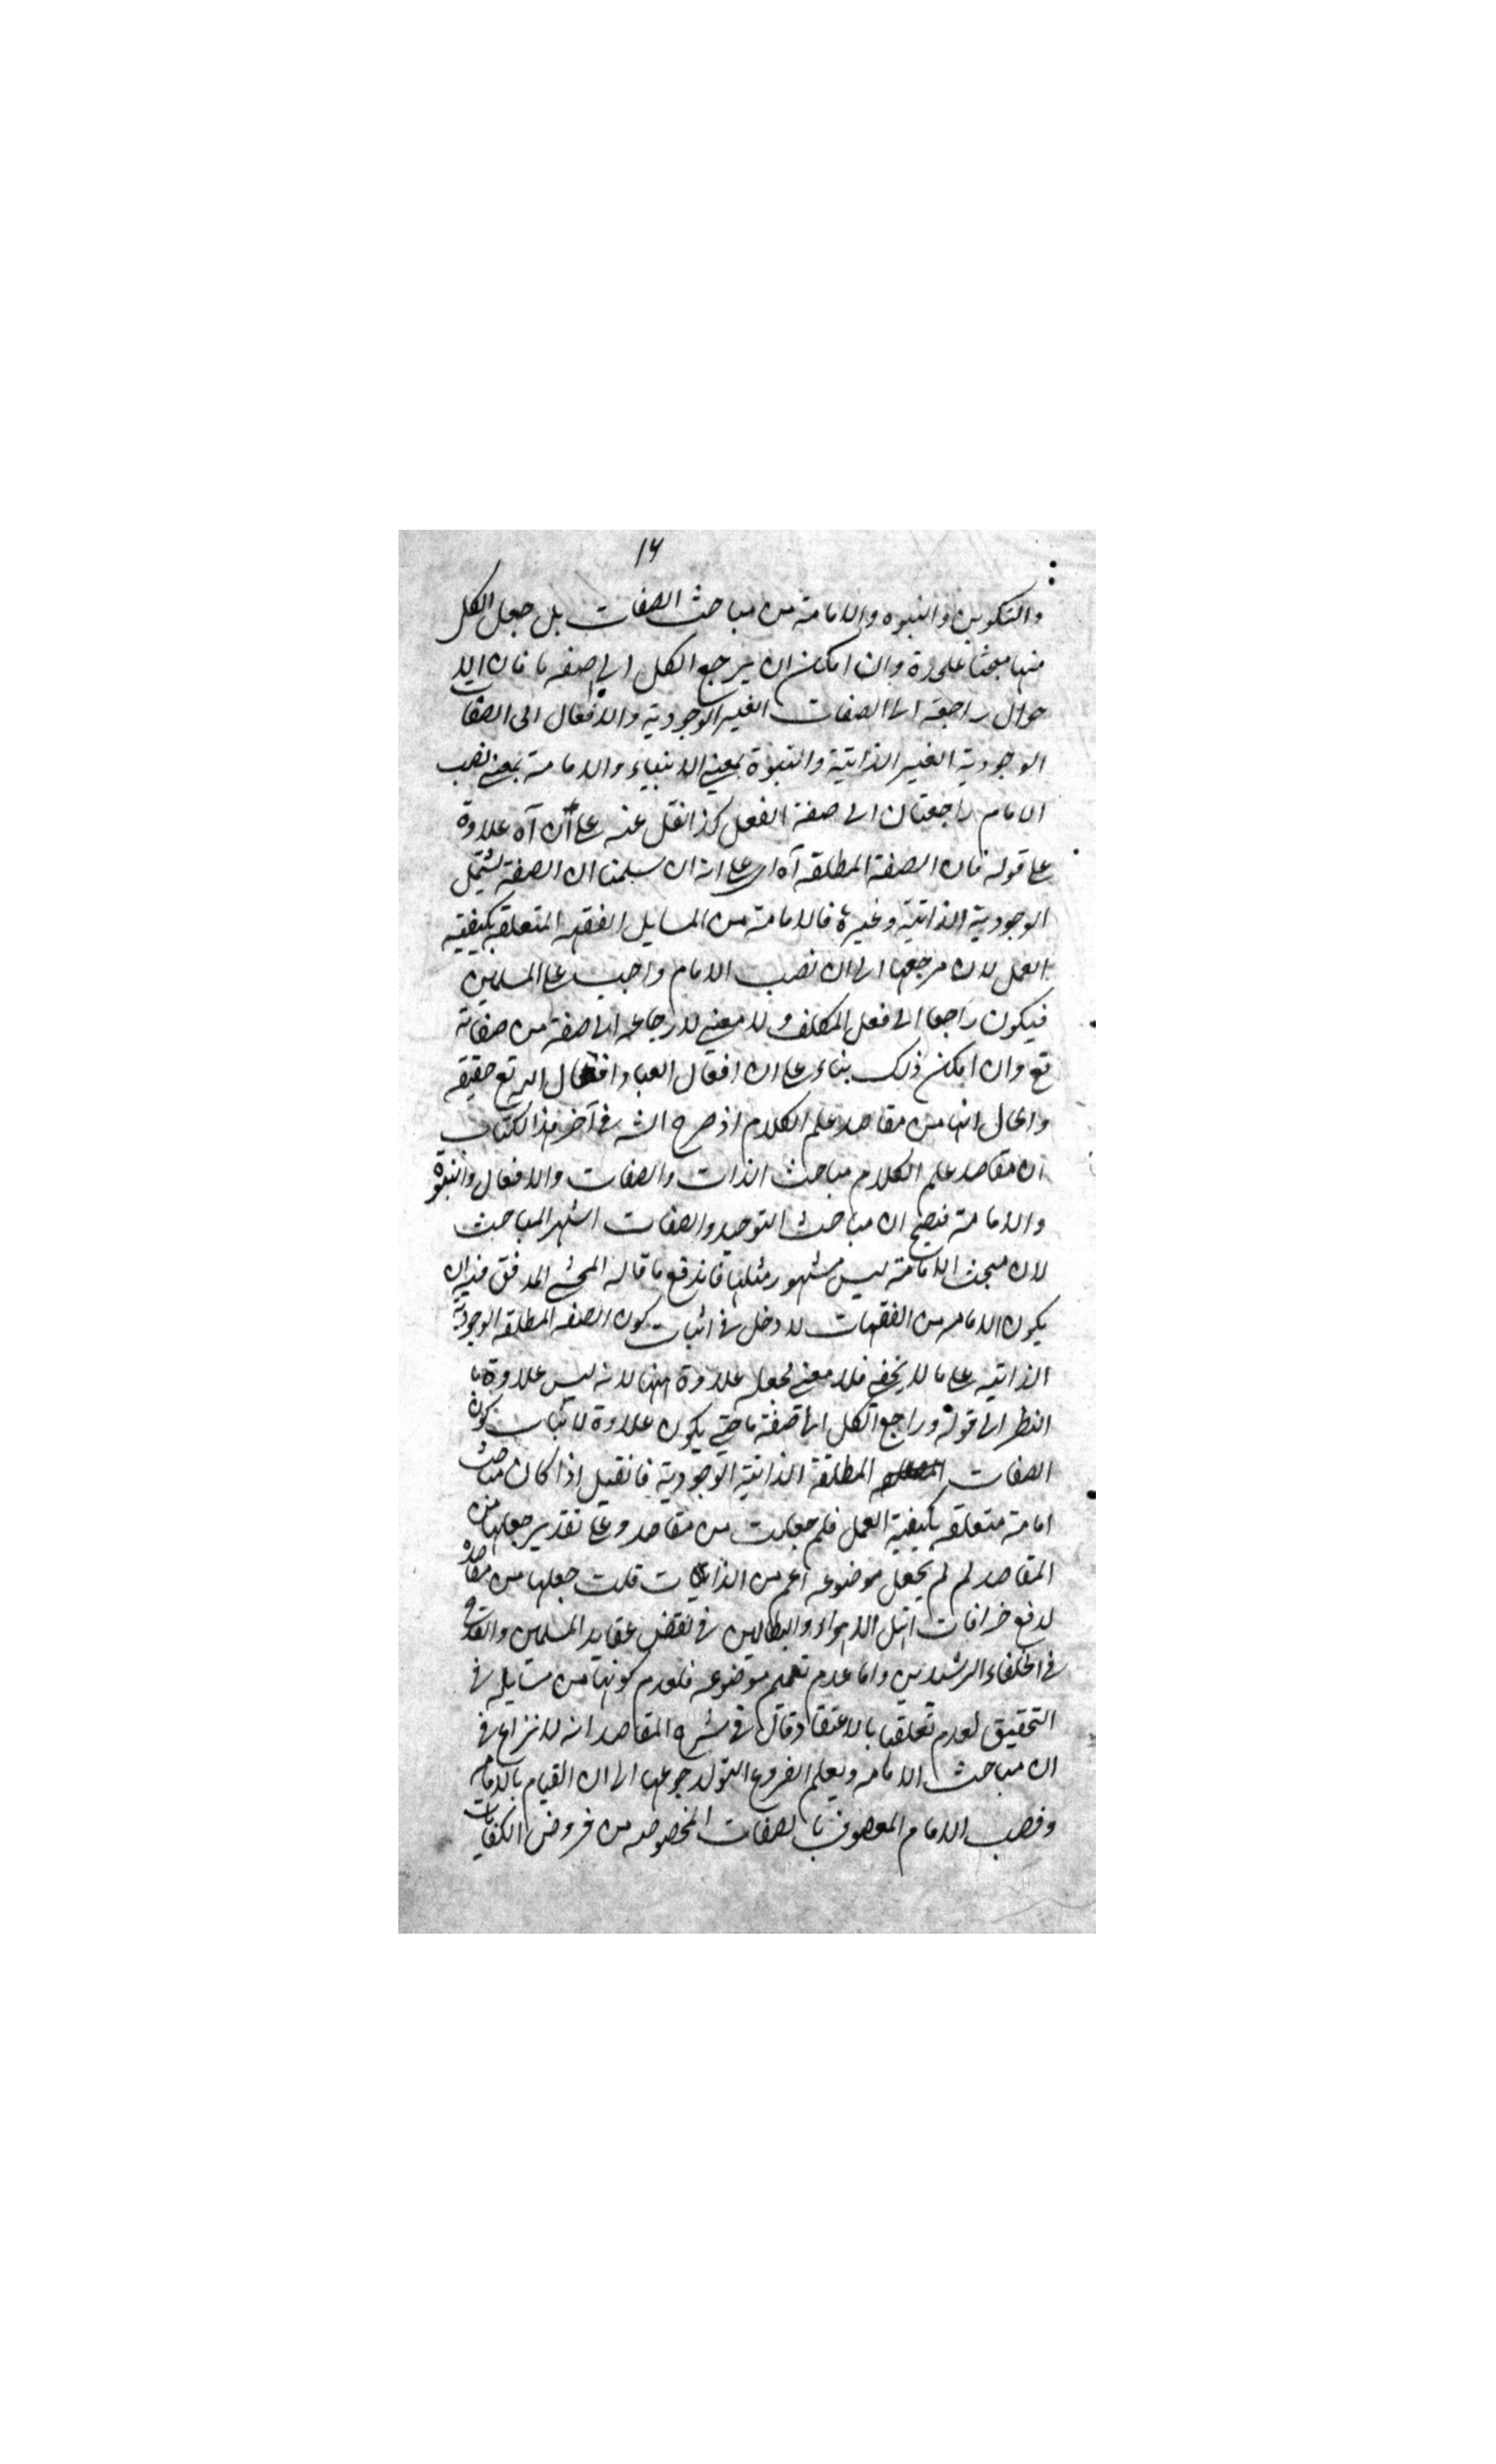 ١٦
والتكوين والنبوه والامامة من مباحث الصفات بل جعل الكل
منها مبحثا على حدة وان امكن ان يرجع الكل الى صفه ما فان الا
حوال راجعة الى الصفات الغير الوجودية والافعال الى الصفات
الوجودية الغير الذاتية والنبوة بمعنى الانبياء والامامة بمعنى نصب
الامام راجعتان الى صفة الفعل كذا نقل عنه على ان آه علاوة
على قوله فان الصفة المطلقه آه اى على انه ان سلمنا ان الصفة تشتمل
الوجودية الذاتية وغيرها فالامامة من المسايل الفقهيه المتعلقه بكيفيه
العمل لان مرجعها الى ان نصب الامام واجب على المسلمين
فيكون راجعا الى فعل المكلف ولا معنى لارجاعه الى صفة من صفاته
تع وان امكن ذلك بناء على ان افعال العباد افعال الله تع حقيقه
والحال انها من مقاصد علم الكلام اذ صرح الشه فى آخر هذا الكتاب
ان مقاصد علم الكلام مباحث الذات والصفات والافعال والنبوة
والامامة فيصح ان مباحث التوحيد والصفات اشهر المباحث
لان مبحث الامامة ليس مشهور مثلها فاندفع ما قاله المحشى المدقق فيه ان
يكون الامامه من الفقهيات لا دخل فى اثبات كون الصفه المطلقه الوجودية
الذاتيه على ما لا يخفى فلا معنى لجعله علاوة ههنا لانه ليس علاوة با
النظر الى قوله وراجع الكل الى صفة ما حتى يكون علاوة لاثبات كون
الصفات المطلقة الذاتية الوجودية فان قيل اذا كان مباحث
امامة متعلقه بكيفية العمل فلم جعلت من مقاصد وعلى تقدير جعلها من
المقاصد لم لم يجعل موضوعه اعم من الذات قلت جعلها من مقاصده
لدفع خرافات اهل الاهواء والبطالين فى نقض عقايد المسلمين والقدح
فى الخلفاء الرشدين واما عدم تعميم موضوعه فلعدم كونها من مسايله فى
التحقيق لعدم تعلقها بالاعتقاد وقال فى شرح المقاصد انه لا نزاع فى
ان مباحث الامامه وبعلم الفروع اليق لرجوعها الى ان القيام بالامامه
ونصب الامام الموصوف بالصفات المخصوصه من فروض الكفايات